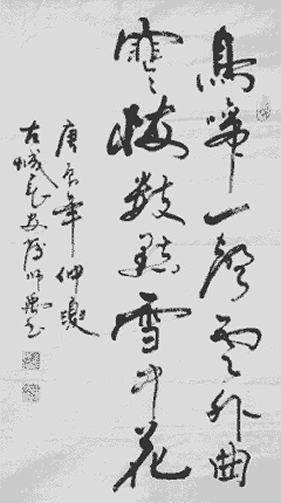 鳥啼一聲雲外曲
寒梅數點雪中花
庚辰年仲夏
古城長安師書